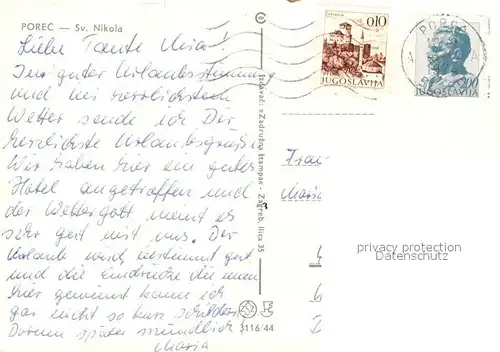 POREČ — Sv. Nikola
Liebe Tante Mia!
In guter Urlaubsstimmung
und bei herrlichstem
Wetter sende ich Dir
herzlichste Urlaubsgrüße.
Wir haben hier ein gutes
Hotel angetroffen und
der Wettergott meint es
sehr gut mit uns. Der
Urlaub wird bestimmt gut
und die Eindrücke die man
hier gewinnt kann ich
gar nicht so kurz schildern
Darum später mündlich!
Maria
Izdavač: »Zadružna štampa« - Zagreb, Ilica 35
3116/44
0,10
JUGOSLAVIJA
POREČ
JUGOSLAVIJA
Frau
Maria
privacy protection
Datenschutz